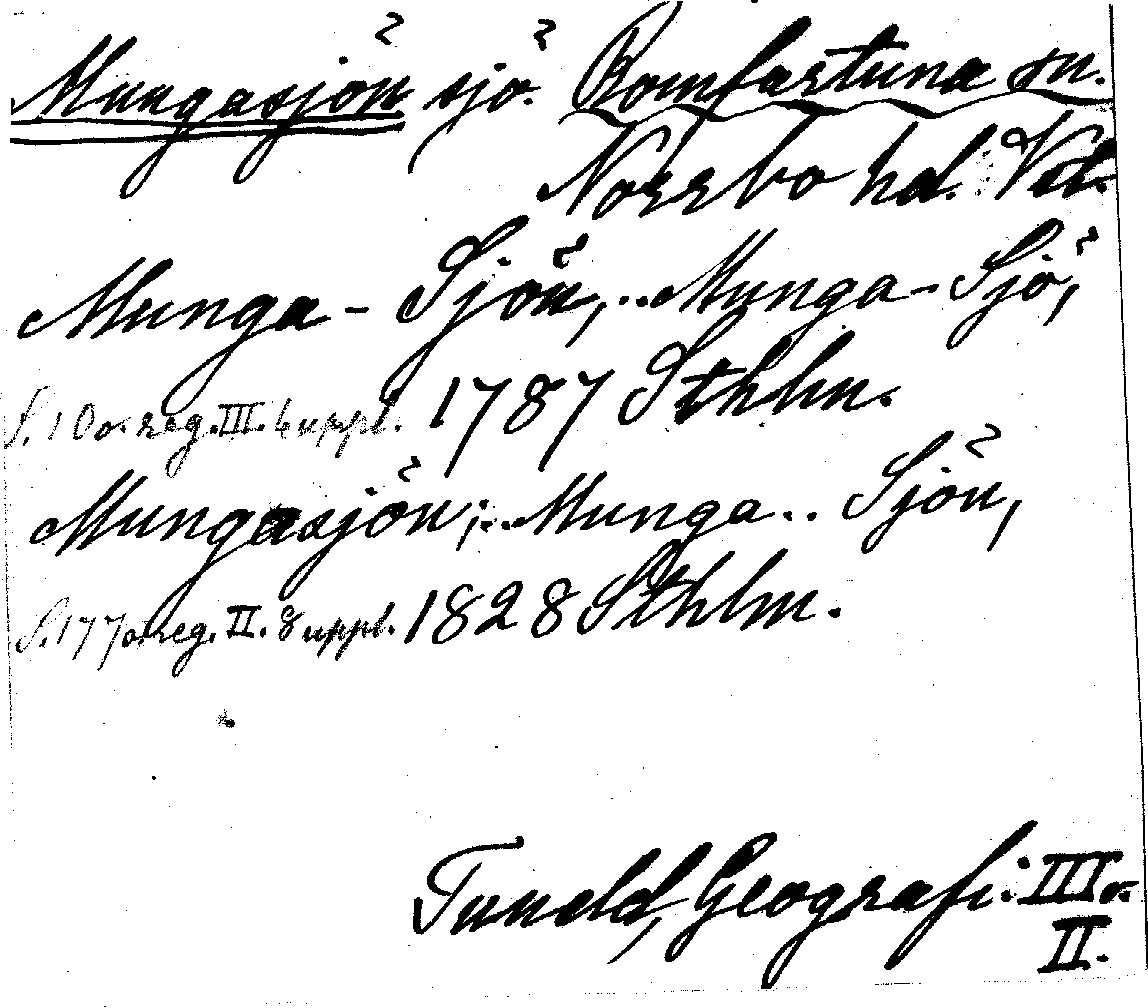 Mungasjön sjö. Romfartuna sn.
Norrbo hd. Vstl.
Munga-Sjön, .. Munga-Sjö,
S. 10 o. reg. III. 6 uppl. 1787 Sthlm.
Mungasjön; .. Munga .. Sjön,
S. 177 o. reg. II. 8 uppl. 1828 Sthlm.
Tuneld, Geografi. III o.
II.